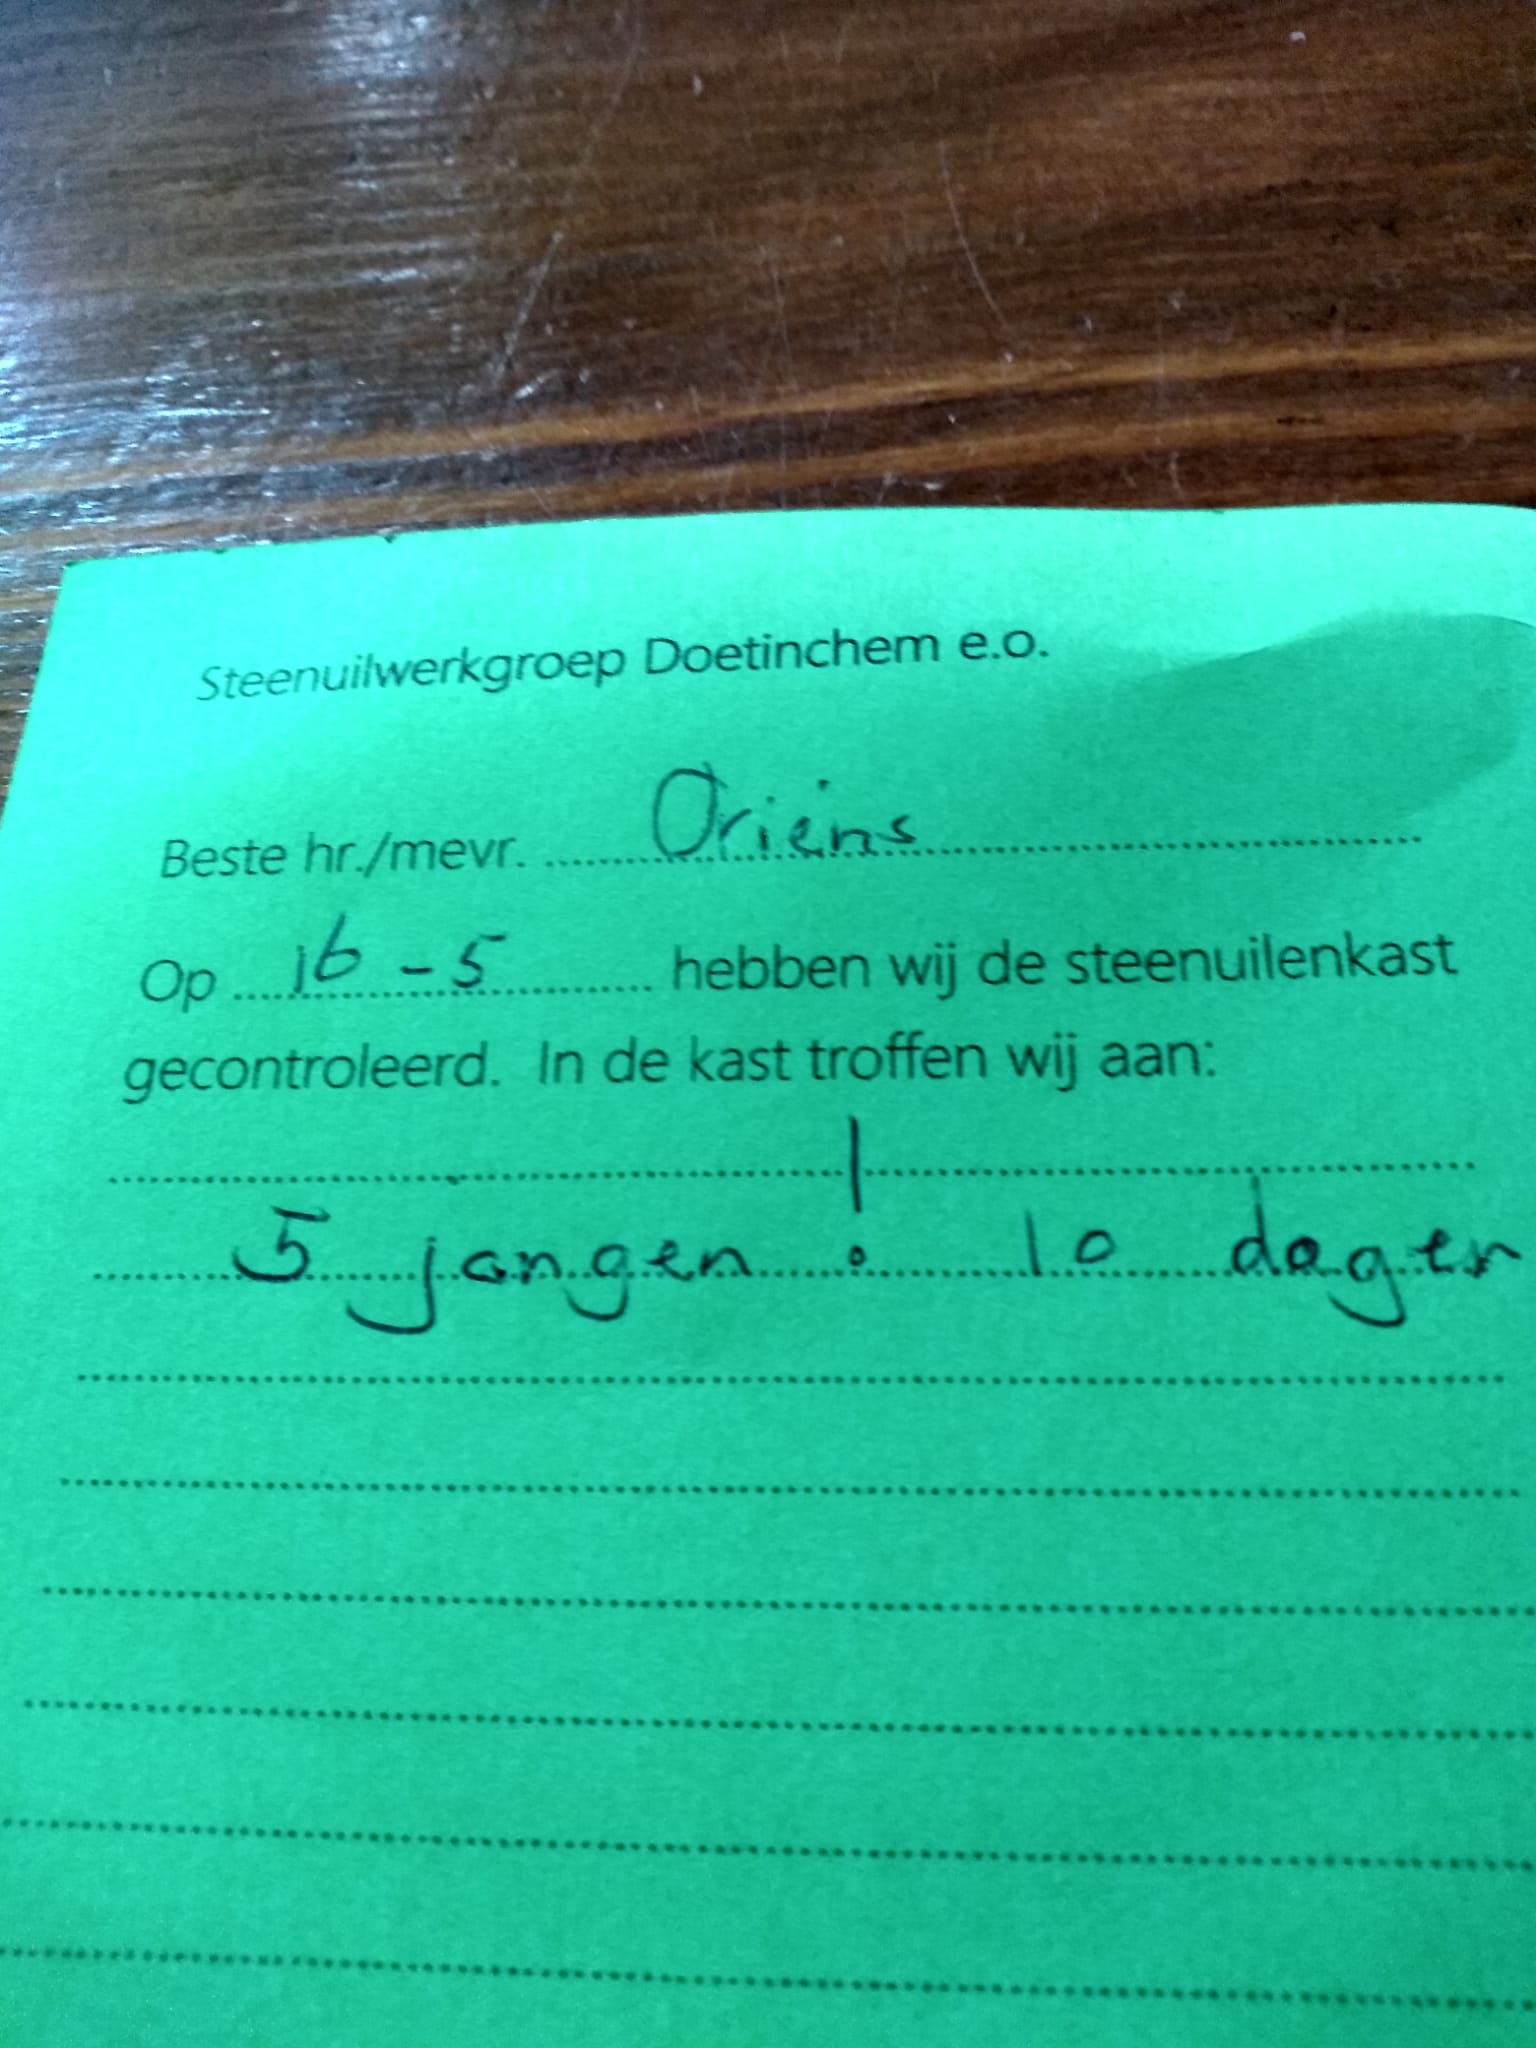 Steenuilwerkgroep Doetinchem e.o.
Beste hr./mevr. Oriëns
Op 16-5 hebben wij de steenuilenkast
gecontroleerd. In de kast troffen wij aan:
5 jongen! 10 dagen